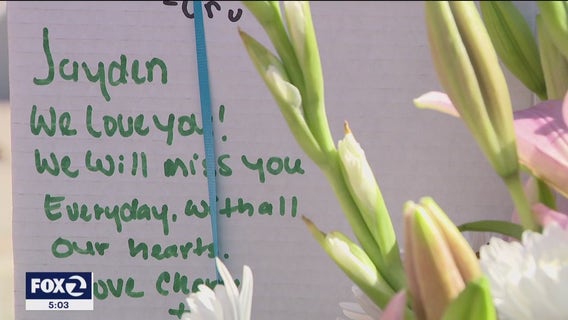 Jayden
We Love you!
We Will miss you
Everyday. with all
our hearts.
Love
FOX 2
5:03